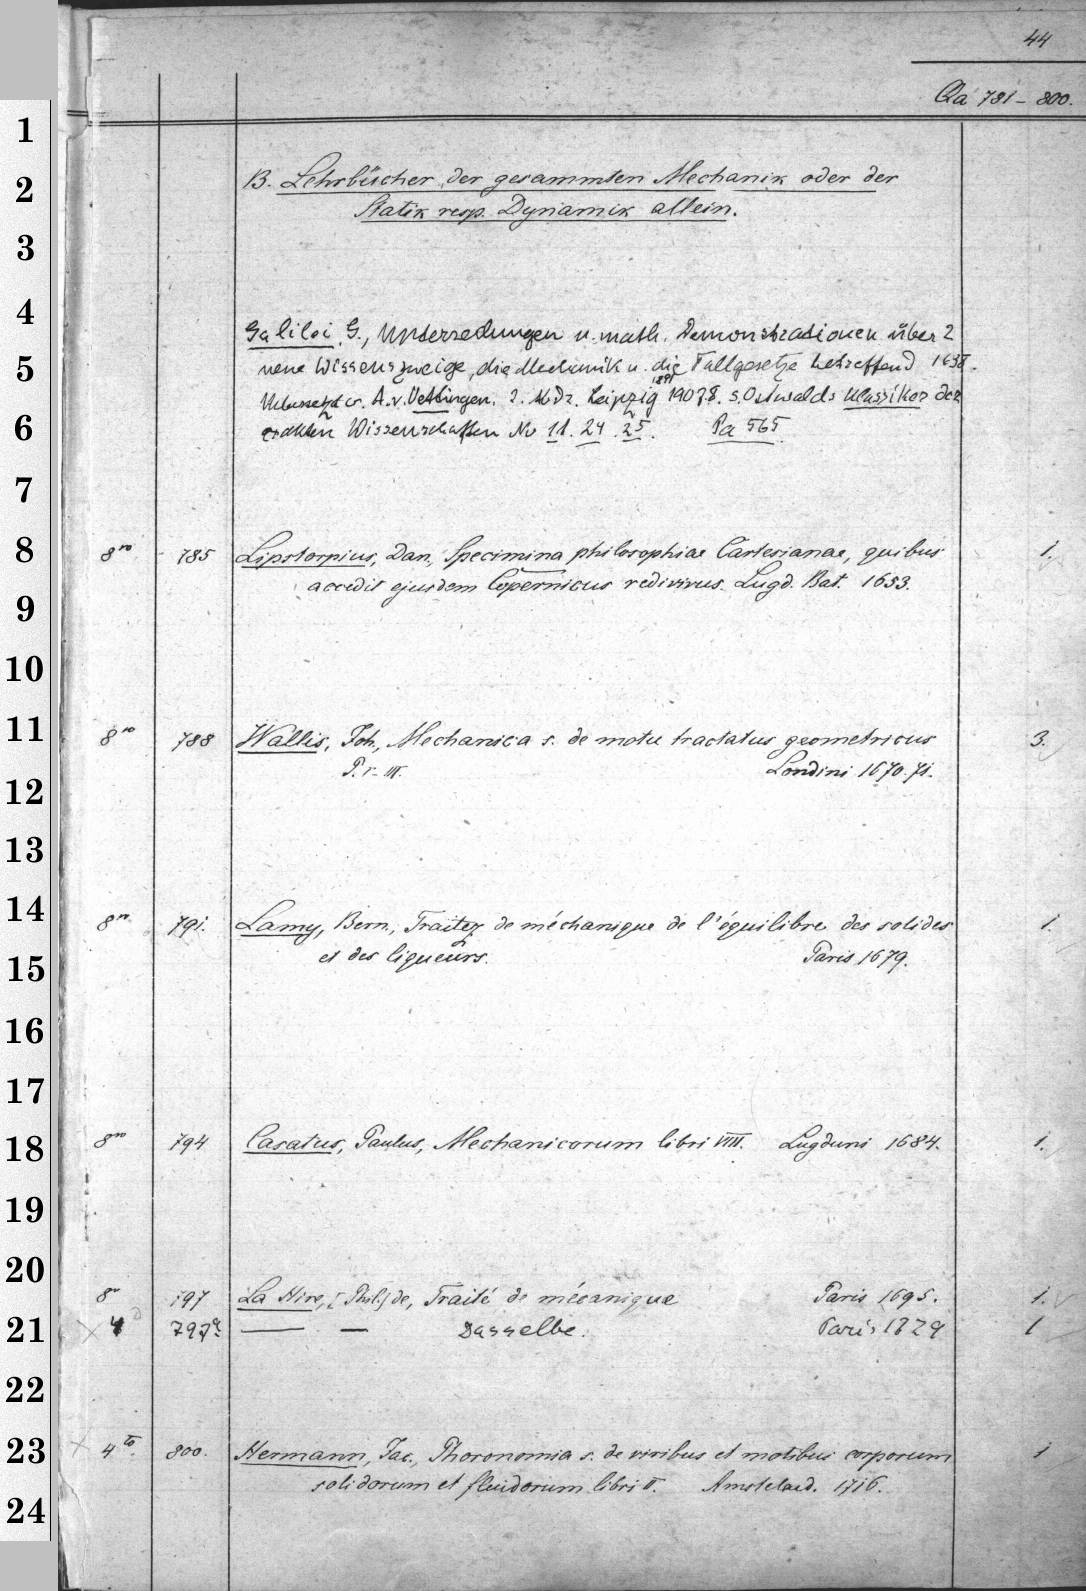 44
Qa 781 - 800.
1
2
3
4
5
6
7
8
9
10
11
12
13
14
15
16
17
18
19
20
21
22
23
24
B. Lehrbücher der gesammten Mechanik oder der
Statik resp. Dynamik allein.
Galilei, G., Unterredungen u. math. Demonstrationen über 2
neue Wissenszweige, die Mechanik u. die Fallgesetze betreffend 1638.
A. v. Oettingen. 2. Leipzig 1891 1907/8. s. Ostwalds Klassiker der
exakten Wissenschaften No 11. 24. 25. Pa 565
8vo 785 Lipstorpius, Dan., Specimina philosophiae Cartesianae, quibus 1.
accedit ejusdem Copernicus redivivus. Lugd. Bat. 1653.
8vo 788 Wallis, Joh., Mechanica s. de motu tractatus geometricus 3.
P. I - III. Londini 1670-71.
8vo 791. Lamy, Bern., Traitez de méchanique de l'équilibre des solides 1.
et des liqueurs. Paris 1679.
8vo 794 Casatus, Paulus, Mechanicorum libri VIII. Lugduni 1684. 1.
8vo 797 La Hire, [Phil.] de, Traité de mécanique Paris 1695. 1.
4 797a — — Dasselbe. Paris 1729 1
4to. 800. Hermann, Jac., Phoronomia s. de viribus et motibus corporum 1
solidorum et fluidorum libri II. Amstelaed. 1716.